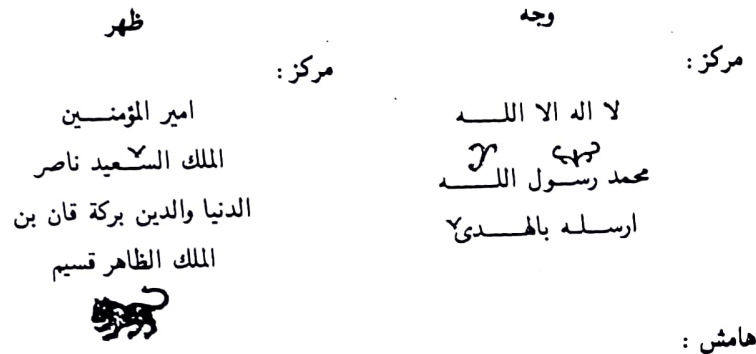 وجه
مركز :
لا اله الا اللـــــه
محمد رســول اللـــــه
ارســله بالهـــدى
هامش :
ظهر
مركز :
امير المؤمنـــــين
الملك السـعيد ناصر
الدنيا والدين بركة قان بن
الملك الظاهر قسيم